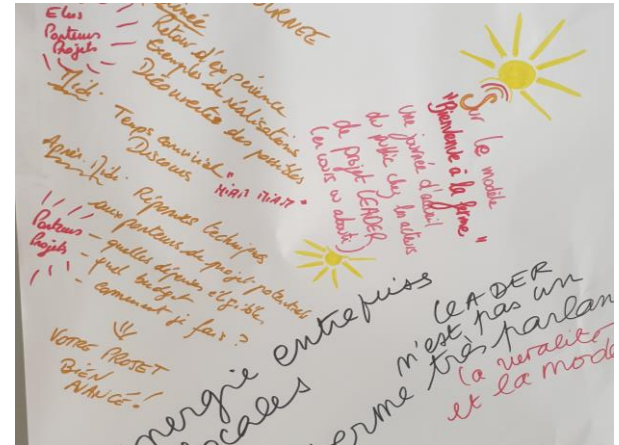 Elus
Porteurs
Projets
JOURNEE
Retour d'expérience
Exemples de réalisations
Découverte des possibles
Midi.
Temps convivial
"MIAM MIAM"
Discours
Après-Midi.
Réponses techniques
aux porteurs de projet potentiels
Porteurs
Projets
- quelles dépenses éligibles
- quel budget
- comment je fais ?
VOTRE PROJET
BIEN
AVANCÉ!
Sur le modèle
"Bienvenue à la ferme"
une journée d'accueil
du public chez les acteurs
de projet LEADER
(en cours ou abouti)
nergie entreprises
ocales
LEADER
n'est pas un
erme très parlan
la ruralité
et la mode